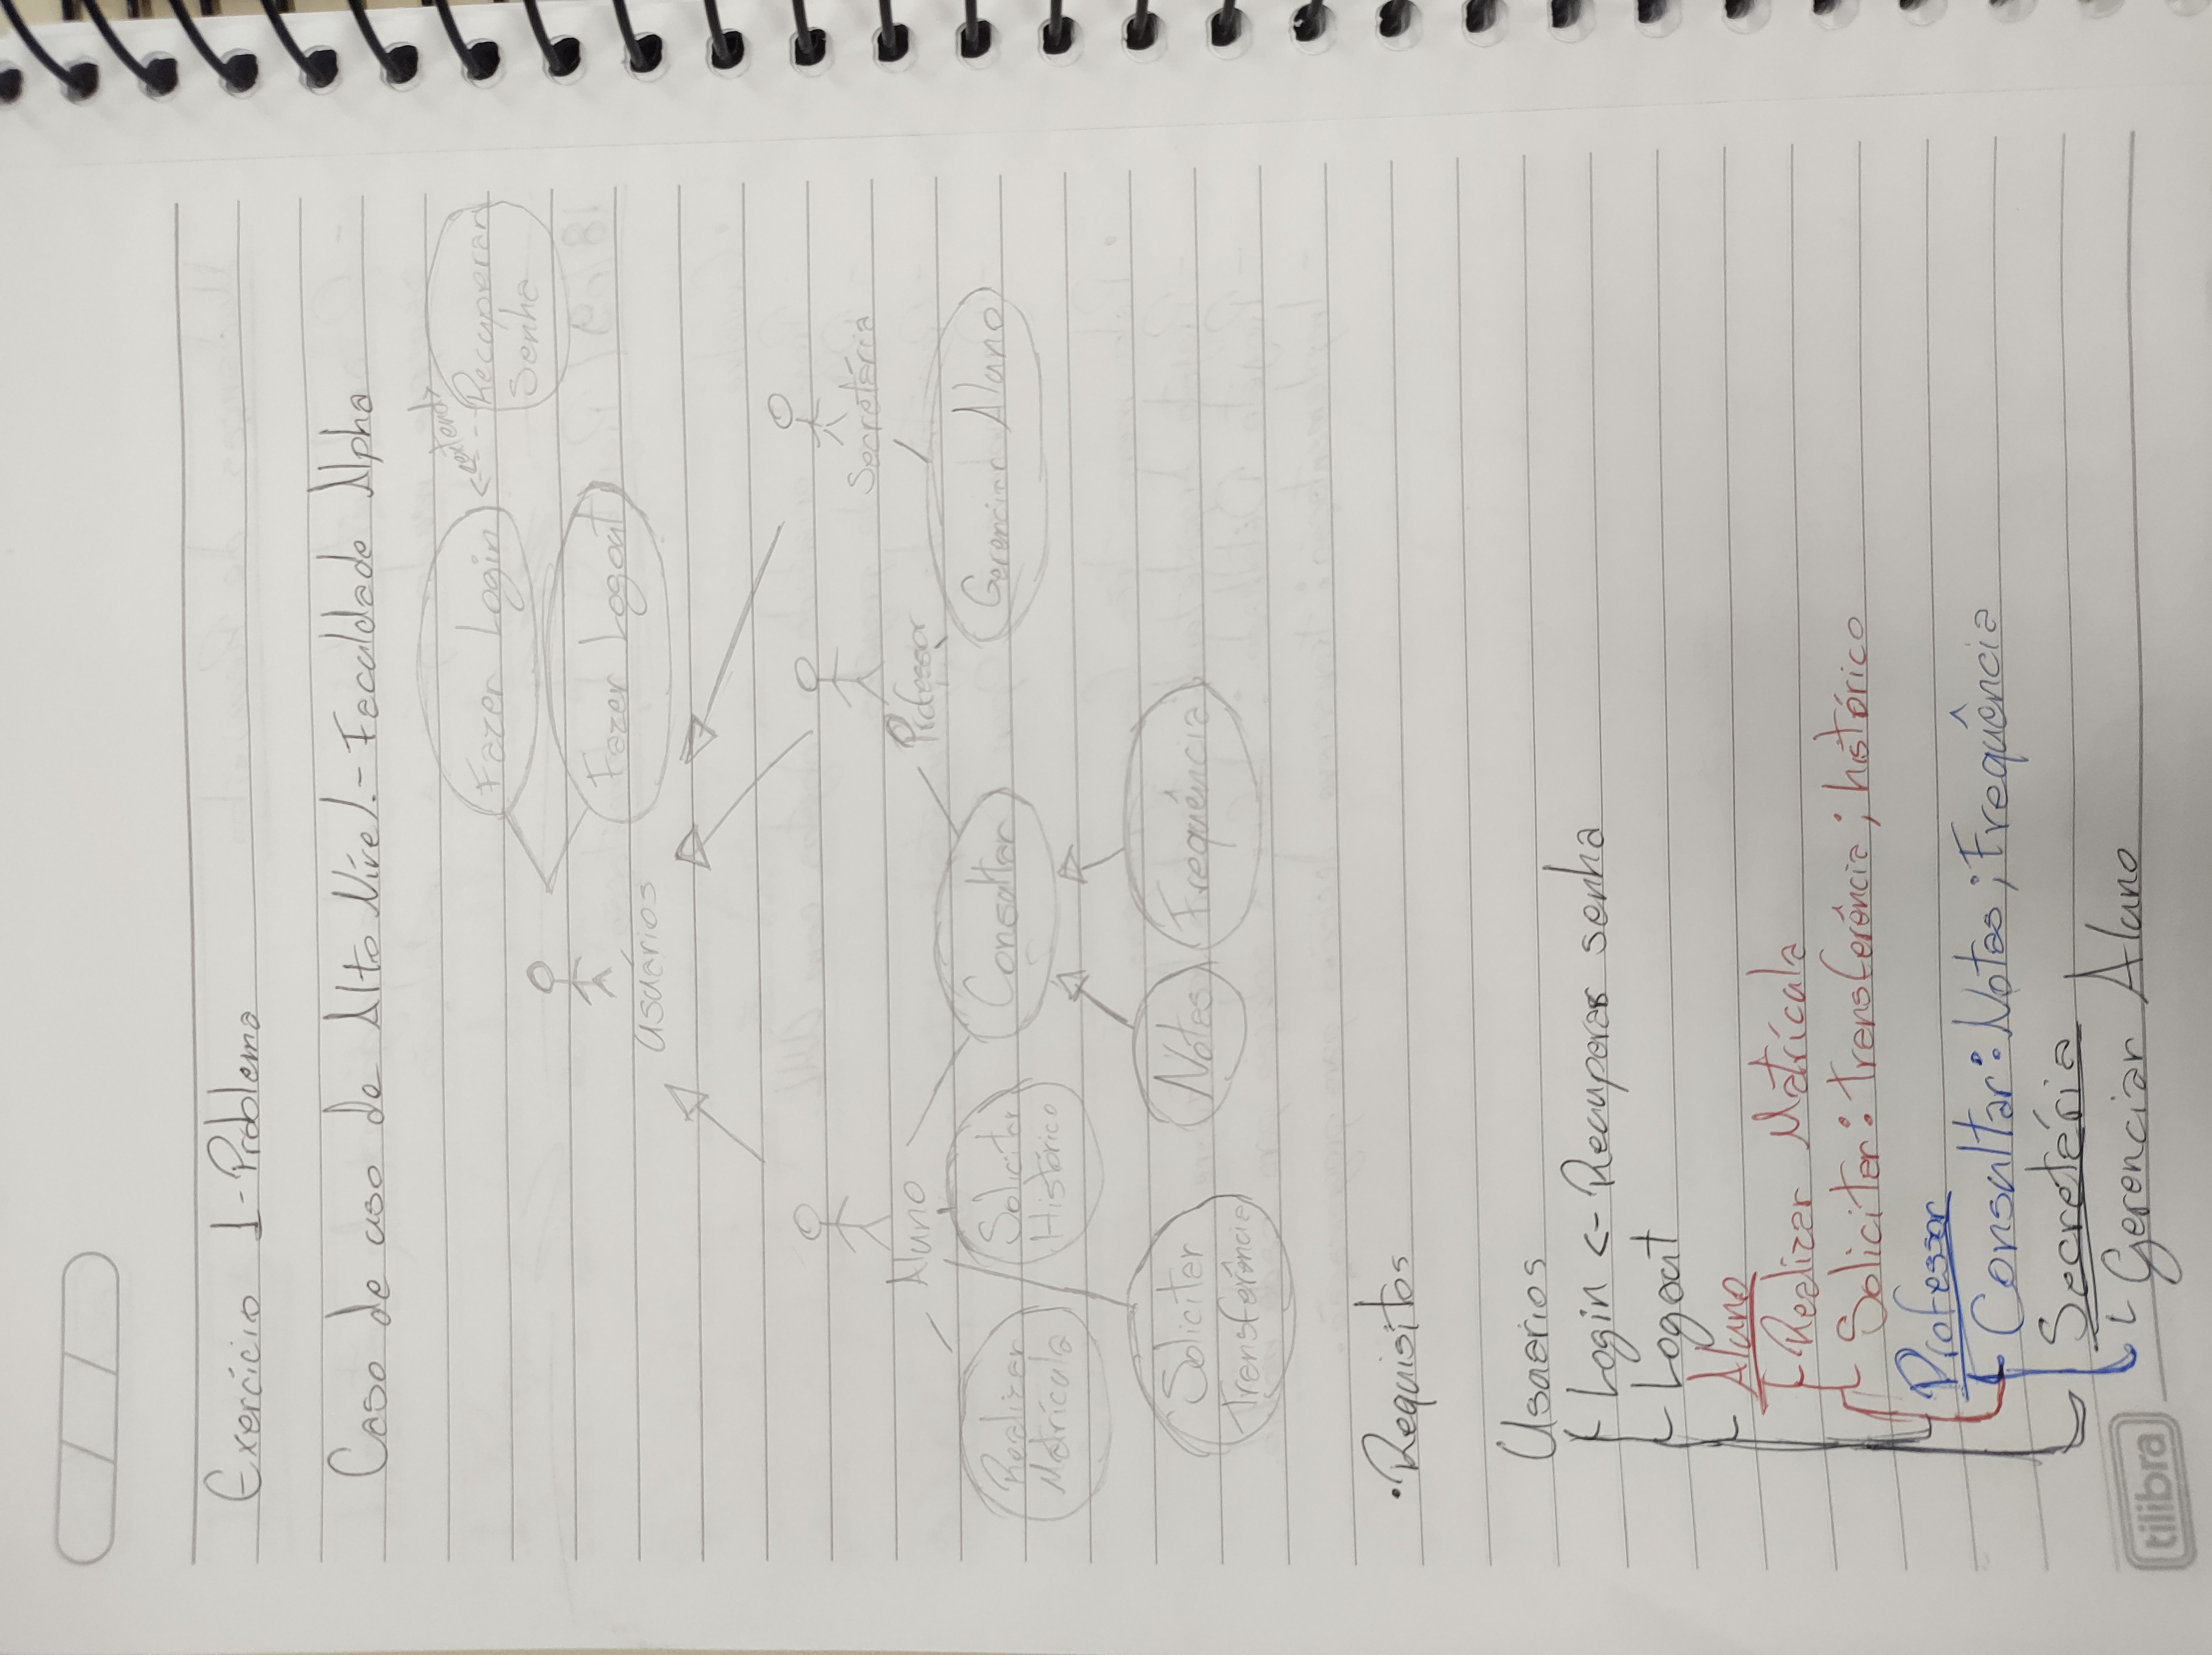 Exercício 1 - Problema
Caso de uso de Alto Nível. - Faculdade Alpha
Fazer Login
<<extend>>
Recuperar
Senha
Fazer Logout
Usuários
Secretária
Aluno
Professor
Realizar
Matrícula
Solicitar
Histórico
Consultar
Gerenciar Aluno
Solicitar
Transferência
Notas
Frequência
• Requisitos
Usuários
Login <- Recuperar senha
Logout
Aluno
Realizar Matrícula
Solicitar: transferência; histórico
Professor
Consultar: Notas; Frequência
Secretária
Gerenciar Aluno
tilibra